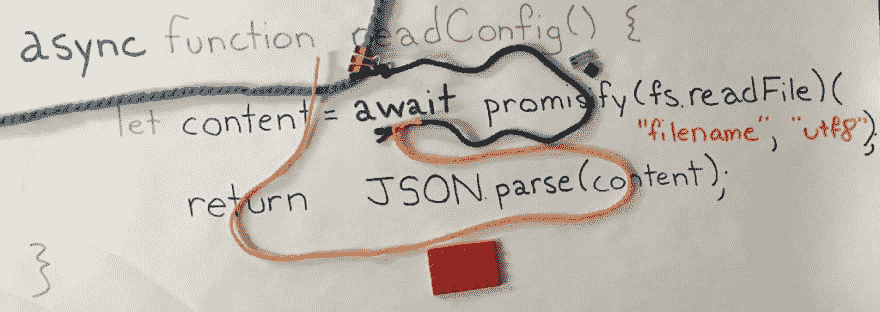 async function readConfig() {
let content = await promisify(fs.readFile)(
"filename", "utf8");
return JSON.parse(content);
}